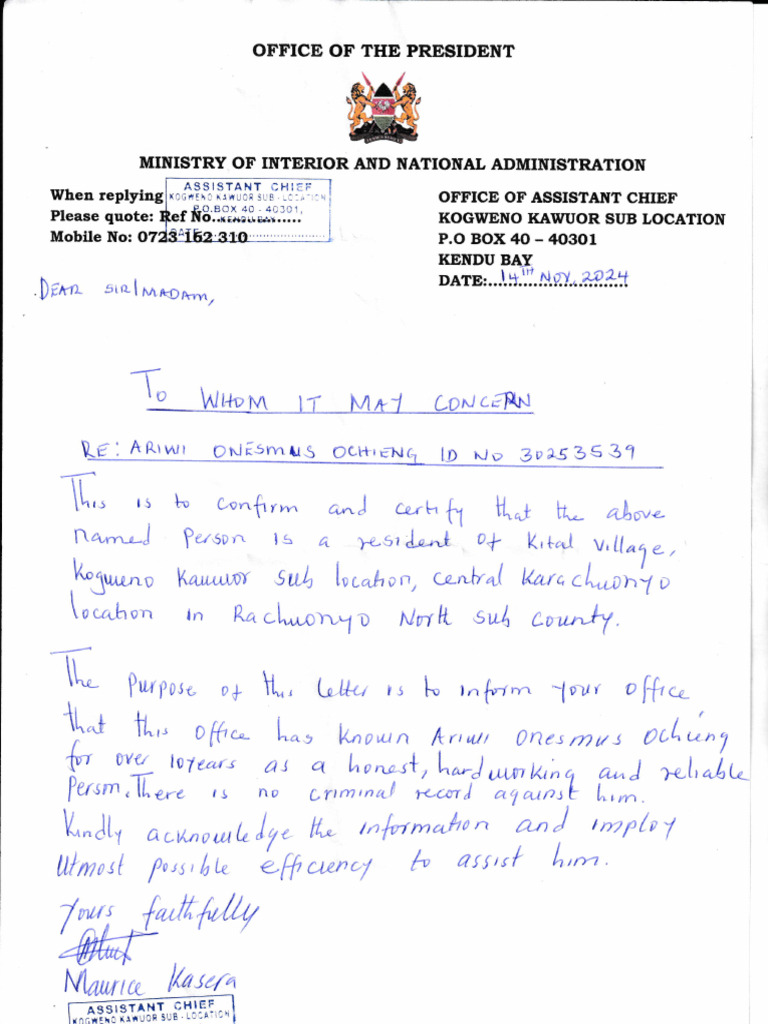 OFFICE OF THE PRESIDENT
MINISTRY OF INTERIOR AND NATIONAL ADMINISTRATION
When replying
Please quote: Ref No..............
Mobile No: 0723 162 310
ASSISTANT CHIEF
KOGWENO KAWUOR SUB - LOCATION
P.O.BOX 40 - 40301,
KENDU BAY
DATE..............................
OFFICE OF ASSISTANT CHIEF
KOGWENO KAWUOR SUB LOCATION
P.O BOX 40 – 40301
KENDU BAY
DATE: 14TH NOV, 2024
DEAR SIR/MADAM,
TO WHOM IT MAY CONCERN
RE: ARIWI ONESMUS OCHIENG ID NO 30253539
This is to confirm and certify that the above
named Person is a resident of Kital Village,
Kogweno Kawuor sub location, central Karachuonyo
location in Rachuonyo North sub county.
The Purpose of this letter is to inform your office,
that this office has known Ariwi Onesmus Ochieng
for over 10years as a honest, hardworking and reliable
Person. There is no criminal record against him.
Kindly acknowledge the information and imploy
Utmost possible efficiency to assist him.
Yours faithfully
Maurice Kasera
ASSISTANT CHIEF
KOGWENO KAWUOR SUB - LOCATION